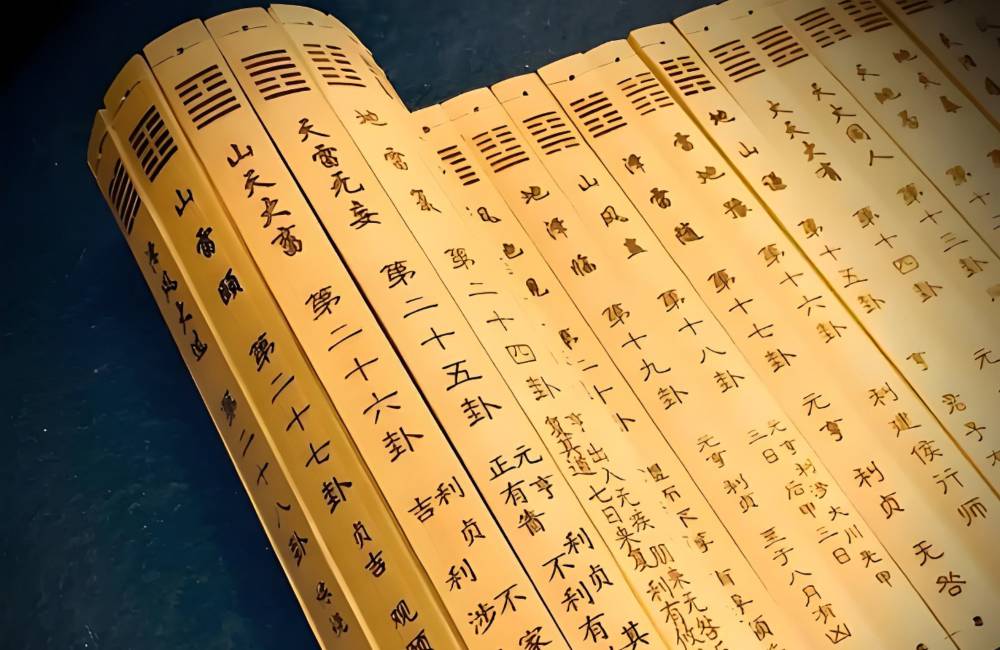 天火同人 第十三卦
火天大有 第十四卦 元
地山谦 第十五卦 亨 君子有
雷地豫 第十六卦 利建侯行师
泽雷随 第十七卦 元亨 利贞 无咎
山风蛊 第十八卦 元亨 利涉大川 先甲
三日 后甲三日
地泽临 第十九卦 元亨 利贞 至于八月有凶
地雷复 第二十四卦 亨 出入无疾 朋来无咎
复其道 七日来复 利有攸
天雷无妄 第二十五卦 元亨 利贞 其
正有眚 不利有
山天大畜 第二十六卦 利贞 不家
吉 利涉
山雷颐 第二十七卦 贞吉 观颐
泽风大过 第二十八卦